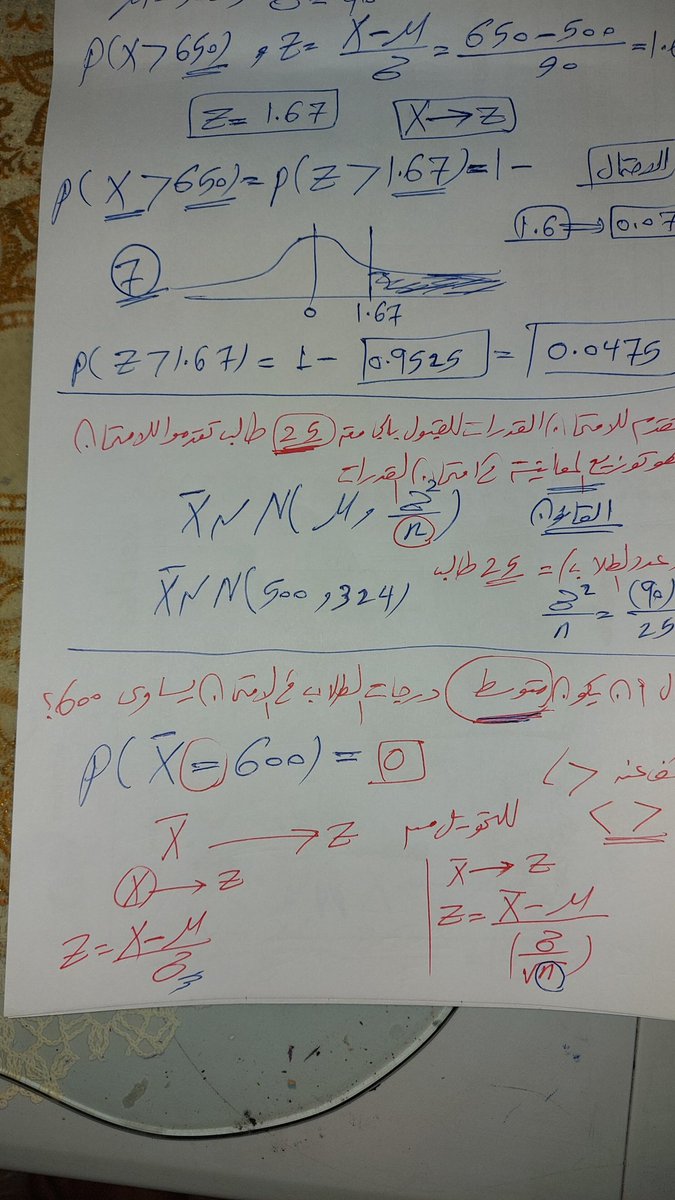 P(X>650), Z= X-μ/σ = 650-500/90 =1.6
Z= 1.67 X→Z
P(X>650)=P(Z>1.67)=1- الاحتمال
1.6 ⇒ 0.07
7
0 1.67
P(Z>1.67) = 1- 0.9525 = 0.0475
تقدم للامتحان القدرات للقبول بالجامعة 25 طالب تقدموا للامتحان
هو توزيع المعاينة في امتحان القدرات
X̄ ~ N(μ, σ²/n) القانون
عدد الطلاب = 25 طالب
X̄ ~ N(500, 324) σ²/n = (90)/25
ان يكون متوسط درجات الطلاب في الامتحان يساوى 600؟
P(X̄ = 600) = 0
< >
< >
X̄ → Z للتحويل من
X → Z X̄ → Z
Z = X-μ/σ Z = X̄-μ/(σ/√n)